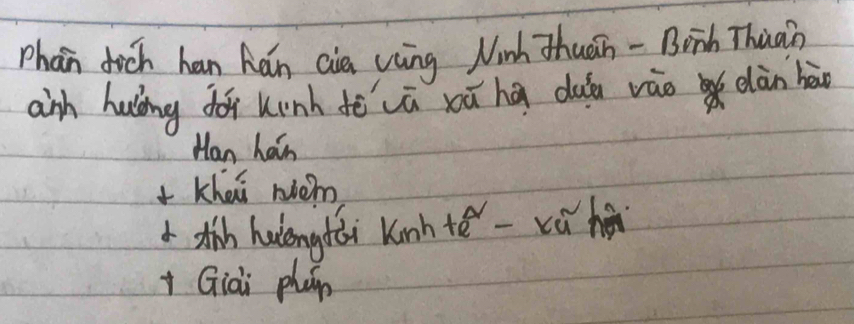 Phân tích hạn hán của vùng Ninh Thuận - Bình Thuận
ảnh hưởng tới kinh tế và xã hội dựa vào dàn bài
Hạn hán
+ Khái niệm
+ Ảnh hưởng tới kinh tế - xã hội
+ Giải pháp